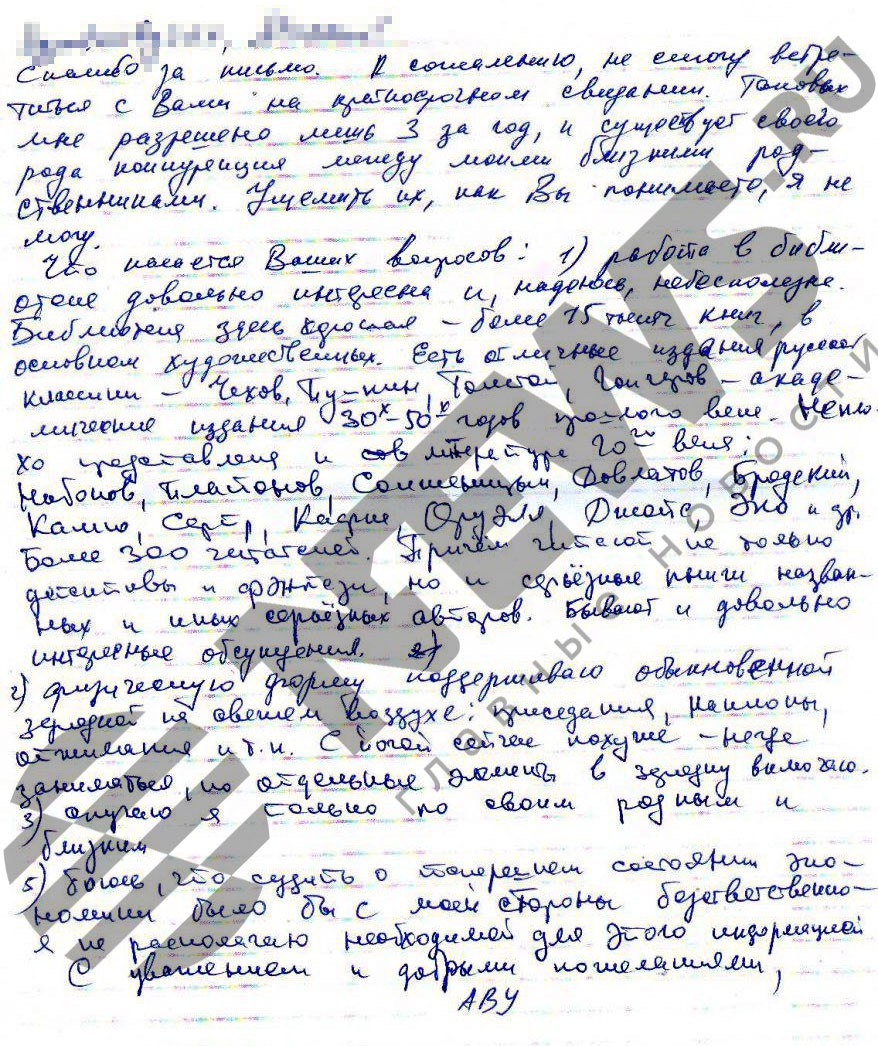 Спасибо за письмо. К сожалению, не смогу встре-
титься с Вами на краткосрочном свидании. Таковых
мне разрешено лишь 3 за год, и существует своего
рода конкуренция между моими близкими род-
ственниками. Ущемить их, как Вы понимаете, я не
могу.
Что касается Ваших вопросов: 1) работа в библи-
отеке довольно интересна и, надеюсь, небесполезна.
Библиотека здесь хорошая – более 15 тысяч книг, в
основном художественных. Есть отличные издания русской
классики – Чехов, Пушкин, Толстой, Гончаров – акаде-
мические издания 30х-50х годов прошлого века. Непло-
хо представлена и литература 20го века:
Набоков, Платонов, Солженицын, Довлатов, Бродский,
Камю, Сартр, Кафка, Оруэлл, Джойс, Эко и др.
Более 300 читателей. Причём читают не только
детективы и фэнтези, но и серьёзные книги назван-
ных и иных серьёзных авторов. Бывают и довольно
интересные обсуждения.
2) физическую форму поддерживаю обыкновенной
зарядкой на свежем воздухе: приседания, наклоны,
отжимания и т.п. С йогой сейчас похуже – негде
заниматься, но отдельные элементы в зарядку включаю.
3) скучаю я только по своим родным и
близким
5) боюсь, что судить о теперешнем состоянии эко-
номики было бы с моей стороны безответственно-
я не располагаю необходимой для этого информацией
С уважением и добрыми пожеланиями,
АВУ
NEWS.RU
главные новости